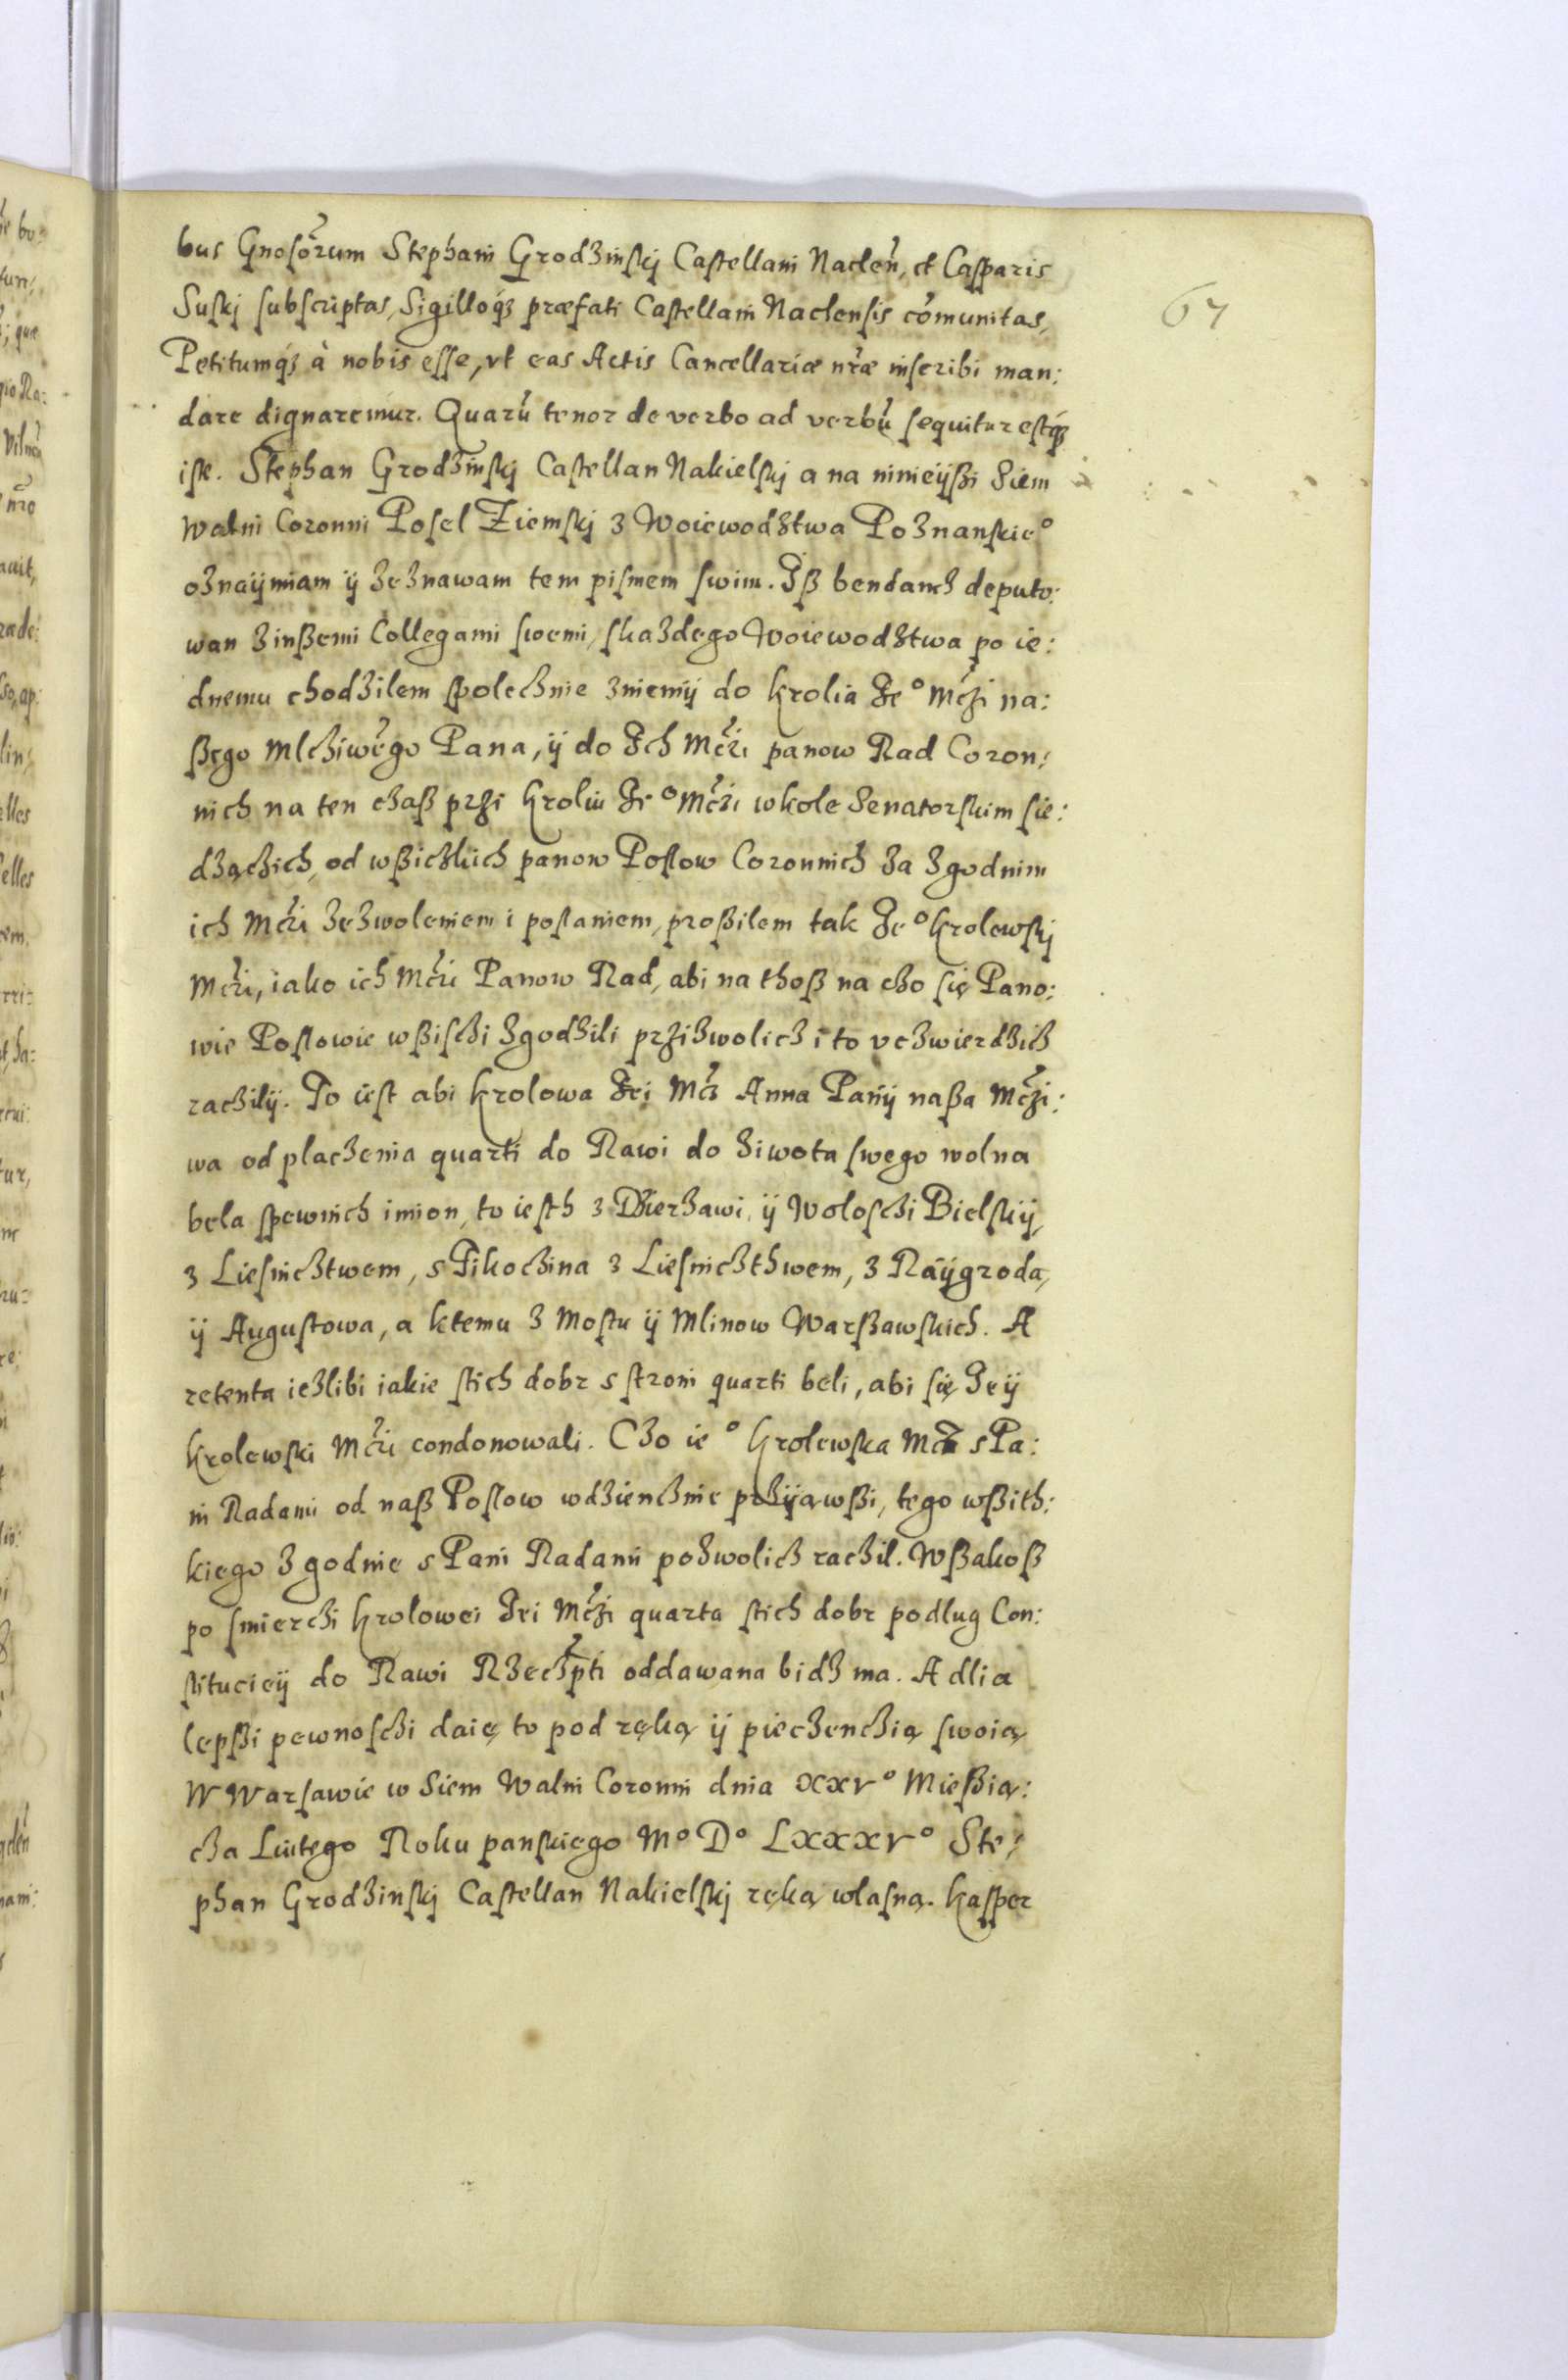 bus Gnosorum Stephani Grodzinskj Castellani Naclen, et Casparis
Suskj subscriptas, Sigilloq3 præfati Castellani Naclensis comunitas,
67
Petitumq3 à nobis esse, vt eas Actis Cancellariæ nræ inscribi man:
dare dignaremur. Quarū tenor de verbo ad verbū sequitur estq3
iste. Stephan Grodzinskj Castellan Nakielskj a na ninieijßi Siem
Walni Coronni Posel Ziemskj z Woiewodztwa Poznanskie°
oznaijmiam ij zeznawam tem pismem swim. Iß bendancz deputo:
wan z inßemi Collegami swemi, skazdego Woiewodztwa po ie:
dnemu chodzilem spolecznie zniemij do Krolia Je° Mczi na:
ßego Mlcziwego Pana, ij do Ich Mczi panow Rad Coron:
nich na ten czaß przi Kroliu Je° Mczi w kole Senatorskim sie:
dzączich, od wßiczkich panow Poslow Coronnich za zgodnim
ich Mczi zezwoleniem i poslaniem, proßilem tak Je° Krolewskj
Mczi, iako ich Mczi Panow Rad, abi na thoß na czo się Pano:
wie Poslowie wßisczi zgodzili przizwolicz i to vczwierdzicz
raczilij. To iest abi Krolowa Jei Mcz Anna Panij naßa Mczi:
wa od placzenia quarti do Rawi do ziwota swego wolna
bela spewnich imion, to iesth z Dzierzawi ij Wolosczi Bielskij,
z Liesnicztwem, s Tikoczina z Liesniczthwem, z Raijgroda,
ij Augustowa, a ktemu z Mostu ij Mlinow Warßawskich. A
retenta iezlibi iakie stich dobr s stroni quarti beli, abi się Jeij
Krolewski Mczi condonowali. Czo ie° Krolewska Mcz s Pa:
ni Radami od naß Poslow wdziencznie przijąwßi, tego wßith:
kiego zgodnie s Pani Radami pozwolicz raczil. Wßakoß
po smierczi Krolowei Jei Mczi quarta stich dobr podlug Con:
stituciej do Rawi Rzeczpti oddawana bidz ma. A dlia
lepßi pewnosczi daię to pod ręką ij pieczenczią swoią
W Warsawie w Siem Walni Coronni dnia XXV° Mießią:
cza Lutego Roku panskiego M° D° LXXXV° Ste:
phan Grodzinskj Castellan Nakielskj ręką wlasną. Kasper